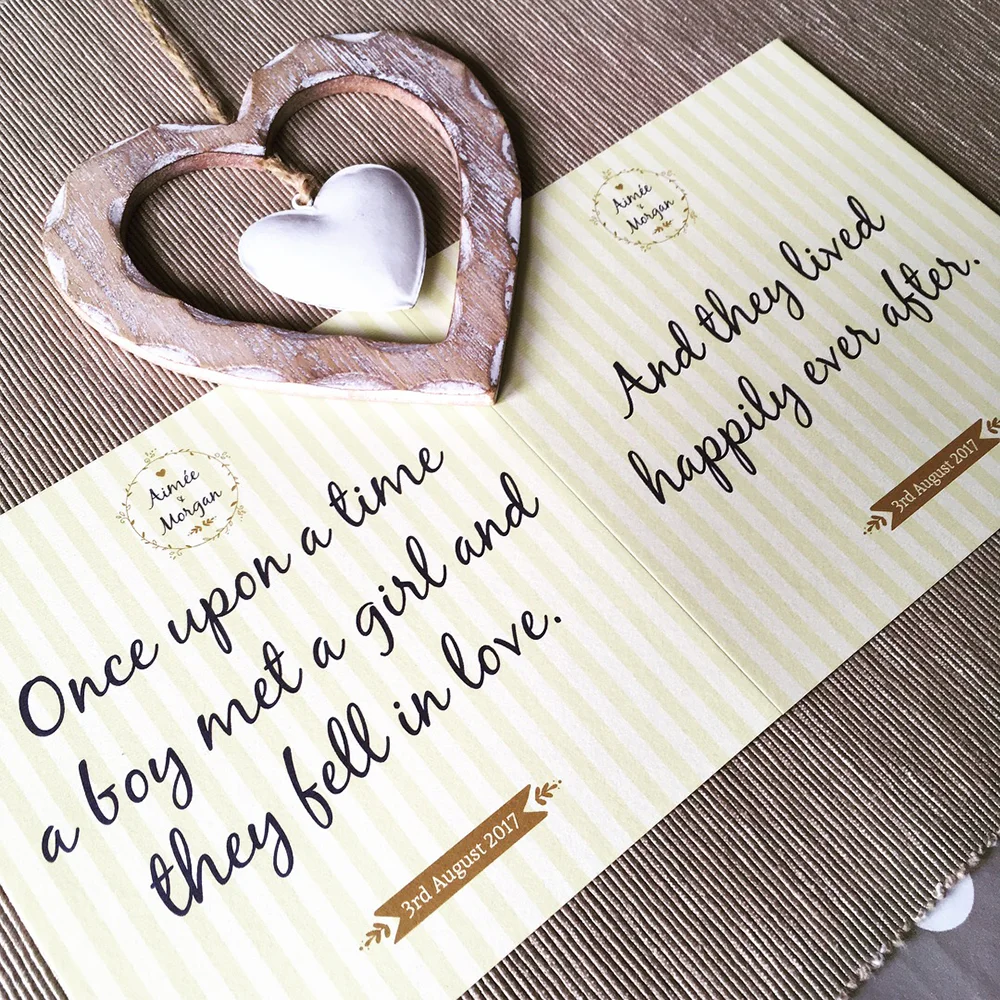 Aimée
&
Morgan
Once upon a time
a boy met a girl and
they fell in love.
3rd August 2017
Aimée
&
Morgan
And they lived
happily ever after.
3rd August 2017